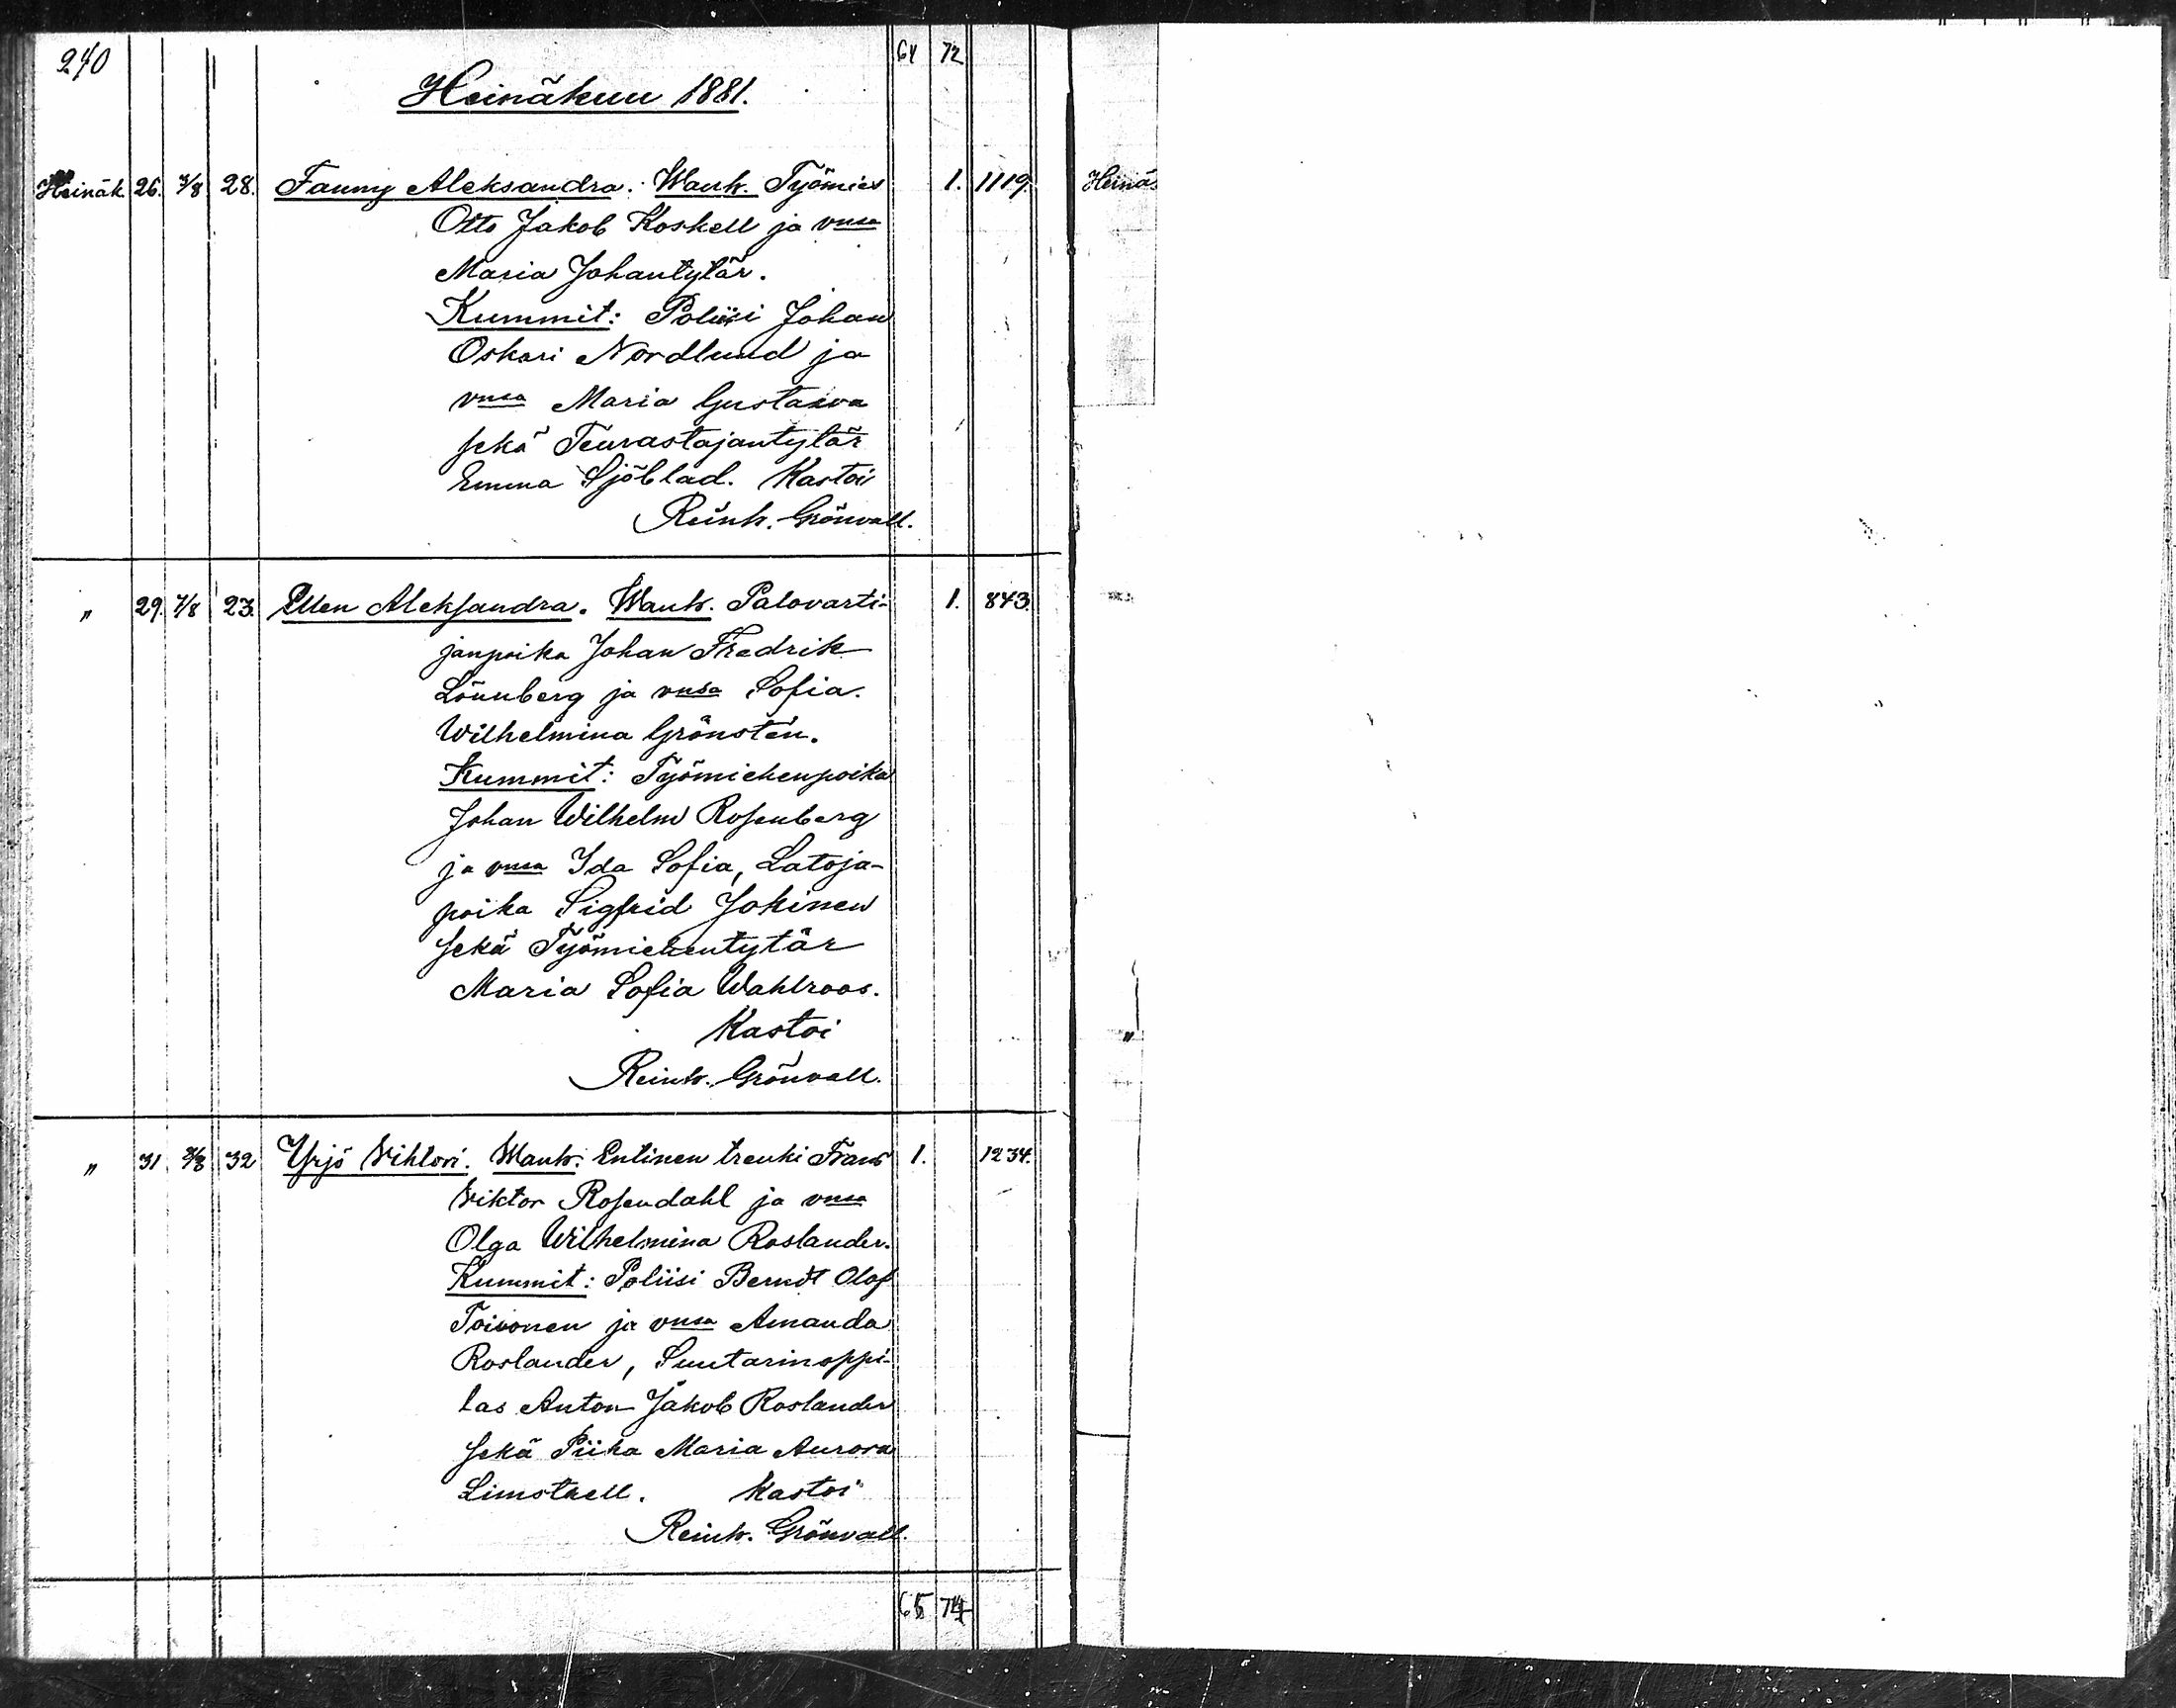 240 64 72
Heinäkuu 1881.
Heinäk. 26. 3/8 28. Fanny Aleksandra. Wanh. Työmies 1. 1119.
Otto Jakob Koskell ja vnsa
Maria Johantytär.
Kummit: Poliisi Johan
Oskari Nordlund ja
vnsa Maria Gustaava
sekä Teurastajantytär
Emma Sjöblad. Kastoi
Reinh. Grönvall.
" 29. 7/8 23. Ellen Aleksandra. Wanh. Palovarti- 1. 843.
janpoika Johan Fredrik
Lönnberg ja vnsa Sofia
Wilhelmina Grönstén.
Kummit: Työmiehenpoika
Johan Wilhelm Rosenberg
ja vnsa Ida Sofia, Latoja-
poika Sigfrid Jokinen
sekä Työmiehentytär
Maria Sofia Wahlroos.
Kastoi
Reinh. Grönvall.
" 31. /8 32 Yrjö Wihtori. Wanh: Entinen trenki Frans 1. 1234.
Wiktor Rosendahl ja vnsa
Olga Wilhelmina Roslander.
Kummit: Poliisi Berndt Olof
Toivonen ja vnsa Amanda
Roslander, Suutarinoppi-
las Anton Jakob Roslander
sekä Piika Maria Aurora
Limstrell. Kastoi
Reinh. Grönvall.
65 74
Heinä
"